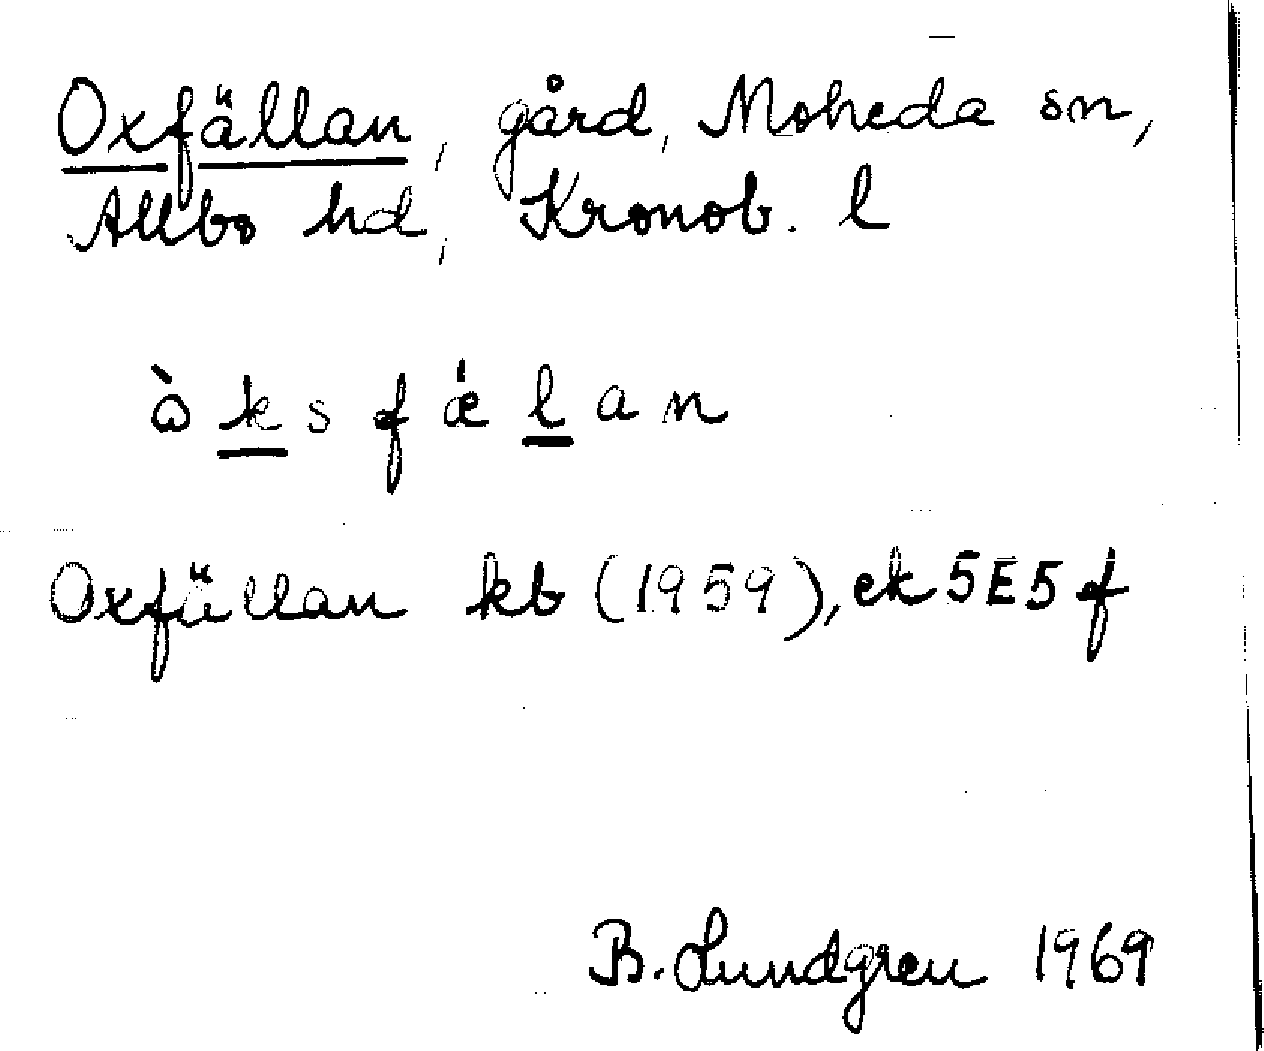 Oxfällan, gård, Moheda sn,
Allbo hd, Kronob. l
ò k s f ǽ l a n
Oxfällan kb (1959), ek 5E5f
B. Lundgren 1969